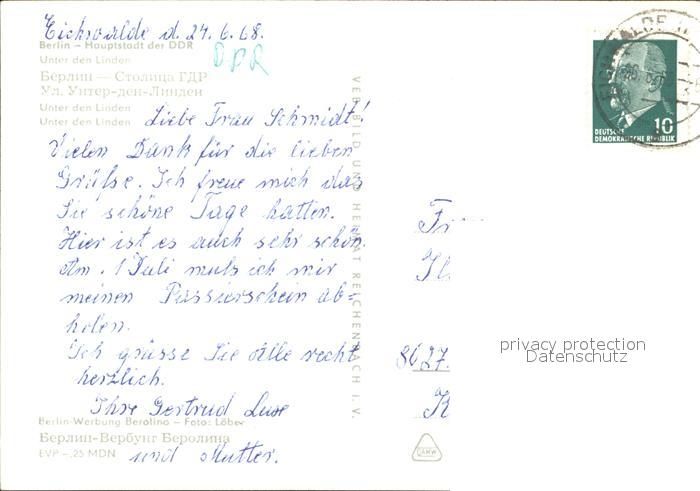 Eichwalde d. 24.6.68.
Berlin – Hauptstadt der DDR
DDR
Unter den Linden
Берлин — Столица ГДР
Ул. Унтер-ден-Линден
Unter den Linden
Unter den Linden
Liebe Frau Schmidt!
Vielen Dank für die lieben
Grüße. Ich freue mich das
Sie schöne Tage hatten.
Hier ist es auch sehr schön.
Am. 1 Juli muß ich mir
meinen Passierschein ab=
holen.
Ich grüsse Sie alle recht
herzlich.
Ihre Gertrud
und Mutter.
Berlin-Werbung Berolina – Foto: Löber
Берлин-Вербунг Беролина
EVP –,25 MDN
VEB BILD UND HEIMAT REICHENBACH I. V.
10
DEUTSCHE
DEMOKRATISCHE REPUBLIK
8627
privacy protection
Datenschutz